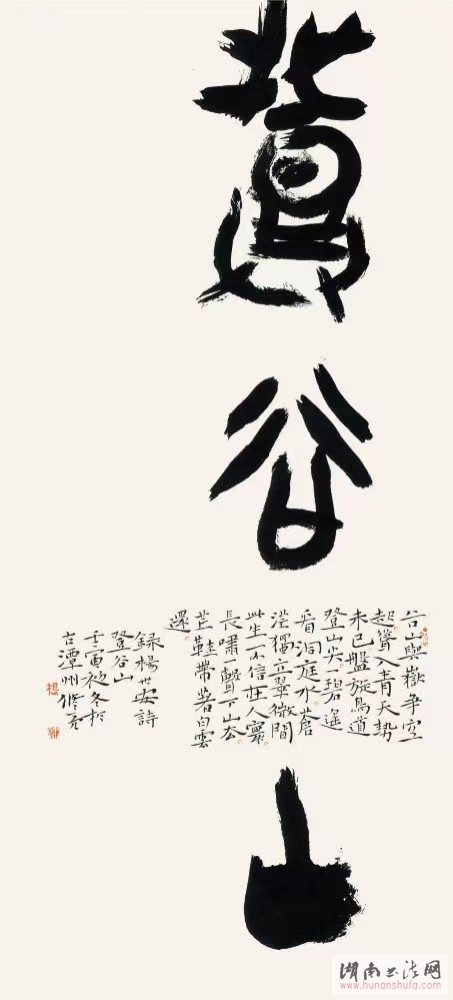 登谷山
谷山與嶽爭空
起聳入青天勢
未已盤旋鳥道
登山尖碧遥
看洞庭水蒼
茫獨立翠微間
此生不信在人寰
長嘯一聲下山去
芒鞋帶著白雲
還
錄楊世安詩
登谷山
壬寅初冬於
古潭州
湖南书法网
www.hunanshufa.com